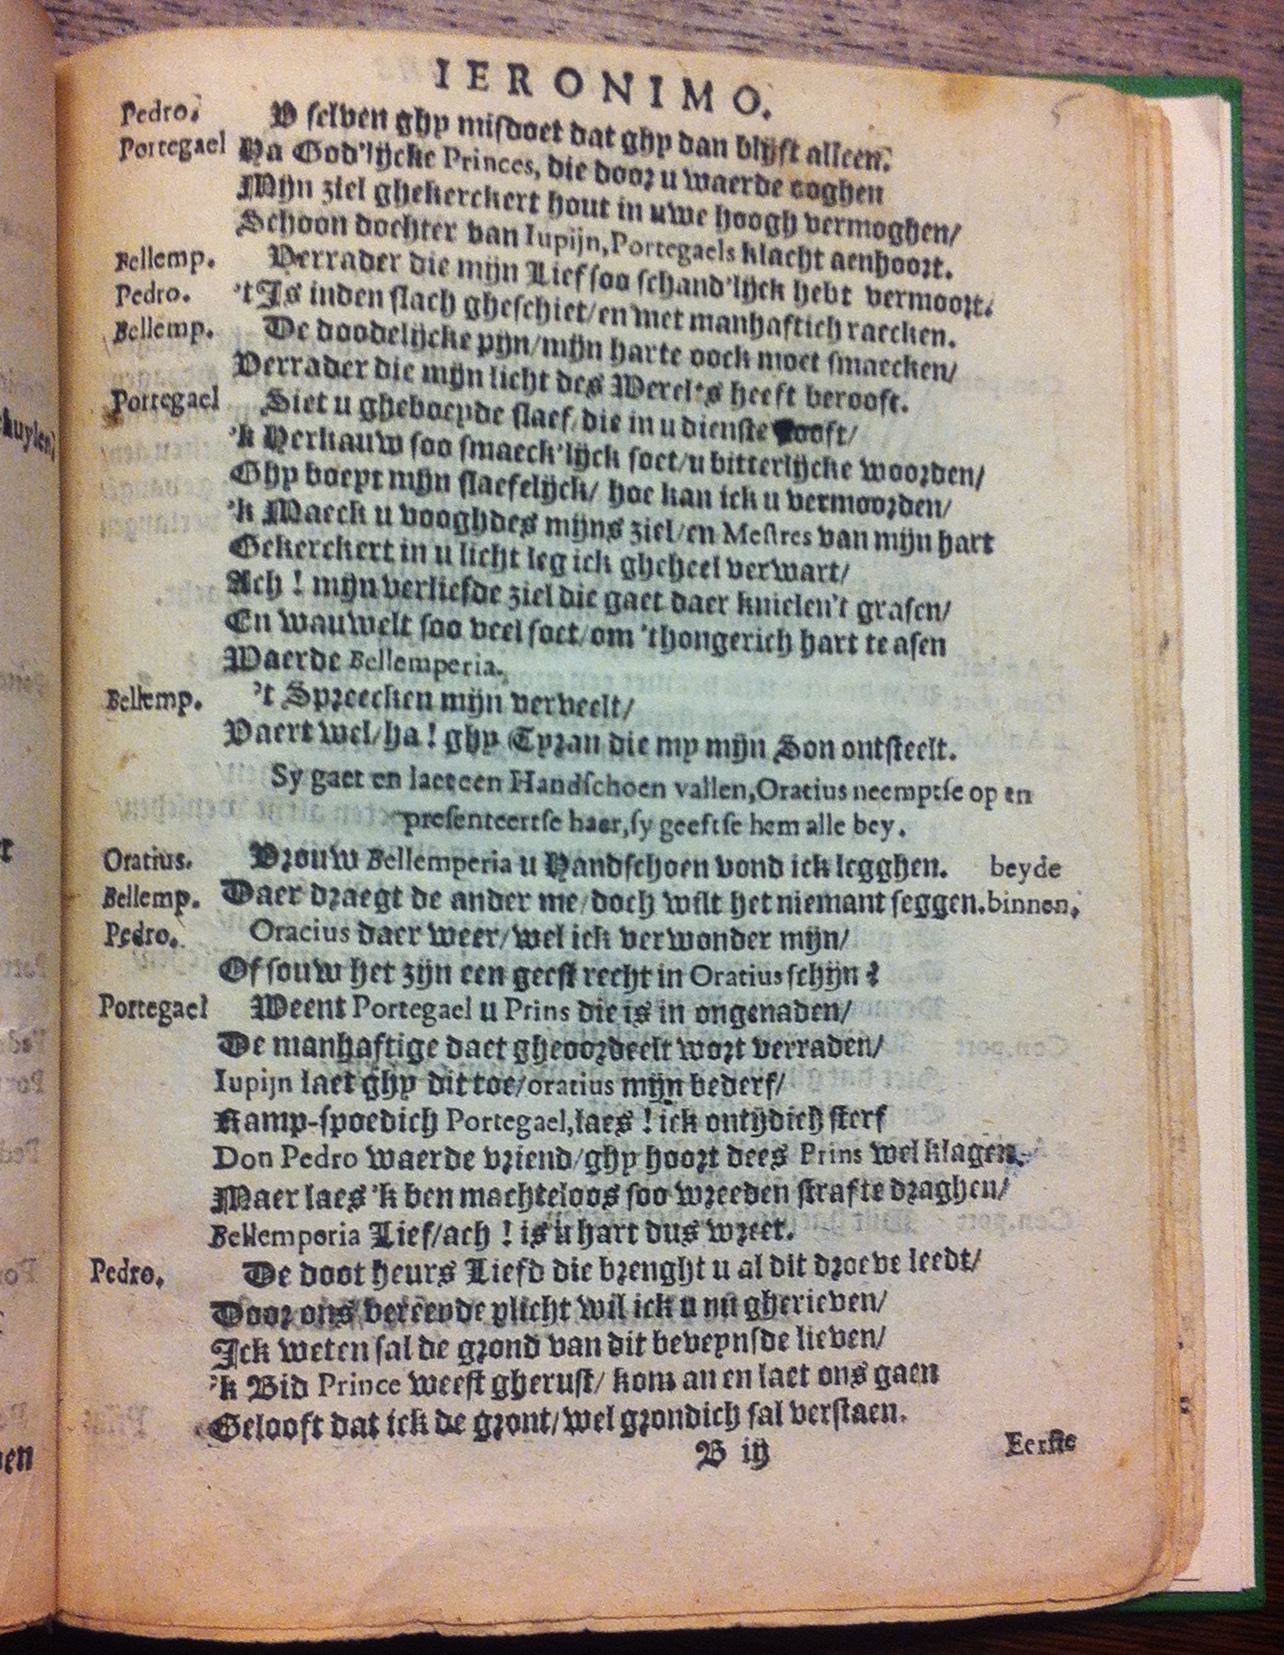 IERONIMO.
5
Pedro. V selven ghy misdoet dat ghy dan blijft alleen.
Portegael Ha God'lijcke Princes, die door u waerde ooghen
Mijn ziel ghekerckert hout in uwe hoogh vermoghen/
Schoon dochter van Iupijn, Portegaels klacht aenhoort.
Bellemp. Verrader die mijn Lief soo schand'lijck hebt vermoort.
Pedro. 't Is inden slach gheschiet/en met manhaftich raecken.
Bellemp. De doodelijcke pijn/mijn harte oock moet smaecken/
Verrader die mijn licht des Werelts heeft berooft.
Portegael Siet u gheboeyde slaef/die in u dienste slooft/
'k Herkauw soo smaeck'lijck soet/u bitterlijcke woorden/
Ghy boeyt mijn slaefelijck/ hoe kan ick u vermoorden/
'k Maeck u vooghdes mijns ziel/en Mestres van mijn hart
Gekerckert in u licht leg ick gheheel verwart/
Ach ! mijn verliefde ziel die gaet daer knielen't grasen/
En wauwelt soo veel soet/om 'thongerich hart te asen
Waerde Bellemperia.
Bellemp. 't Spreecken mijn verveelt/
Vaert wel/ha ! ghy Tyran die my mijn Son ontsteelt.
Sy gaet en laet een Handschoen vallen, Oratius neemptse op en
presenteertse haer, sy geeftse hem alle bey.
Oratius. Vrouw Bellemperia u Handschoen vond ick legghen. beyde
Bellemp. Daer draegt de ander me/doch wilt het niemant seggen. binnen.
Pedro. Oracius daer weer/wel ick verwonder mijn/
Of souw het zijn een geest recht in Oratius schijn ?
Portegael Weent Portegael u Prins die is in ongenaden/
De manhaftige daet gheoordeelt wort verraden/
Iupijn laet ghy dit toe/oratius mijn bederf/
Kamp-spoedich Portegael, laes ! ick ontijdich sterf
Don Pedro waerde vriend/ghy hoort dees Prins wel klagen.
Maer laes 'k ben machteloos soo wreeden straf te draghen/
Bellemperia Lief/ach ! is u hart dus wreet.
Pedro. De doot heurs Liefd die brenght u al dit droeve leedt/
Door ons vereende plicht wil ick u nu gherieven/
Ick weten sal de grond van dit beveynsde lieven/
'k Bid Prince weest gherust/ kom an en laet ons gaen
Gelooft dat ick de gront/wel grondich sal verstaen.
B iij Eerste